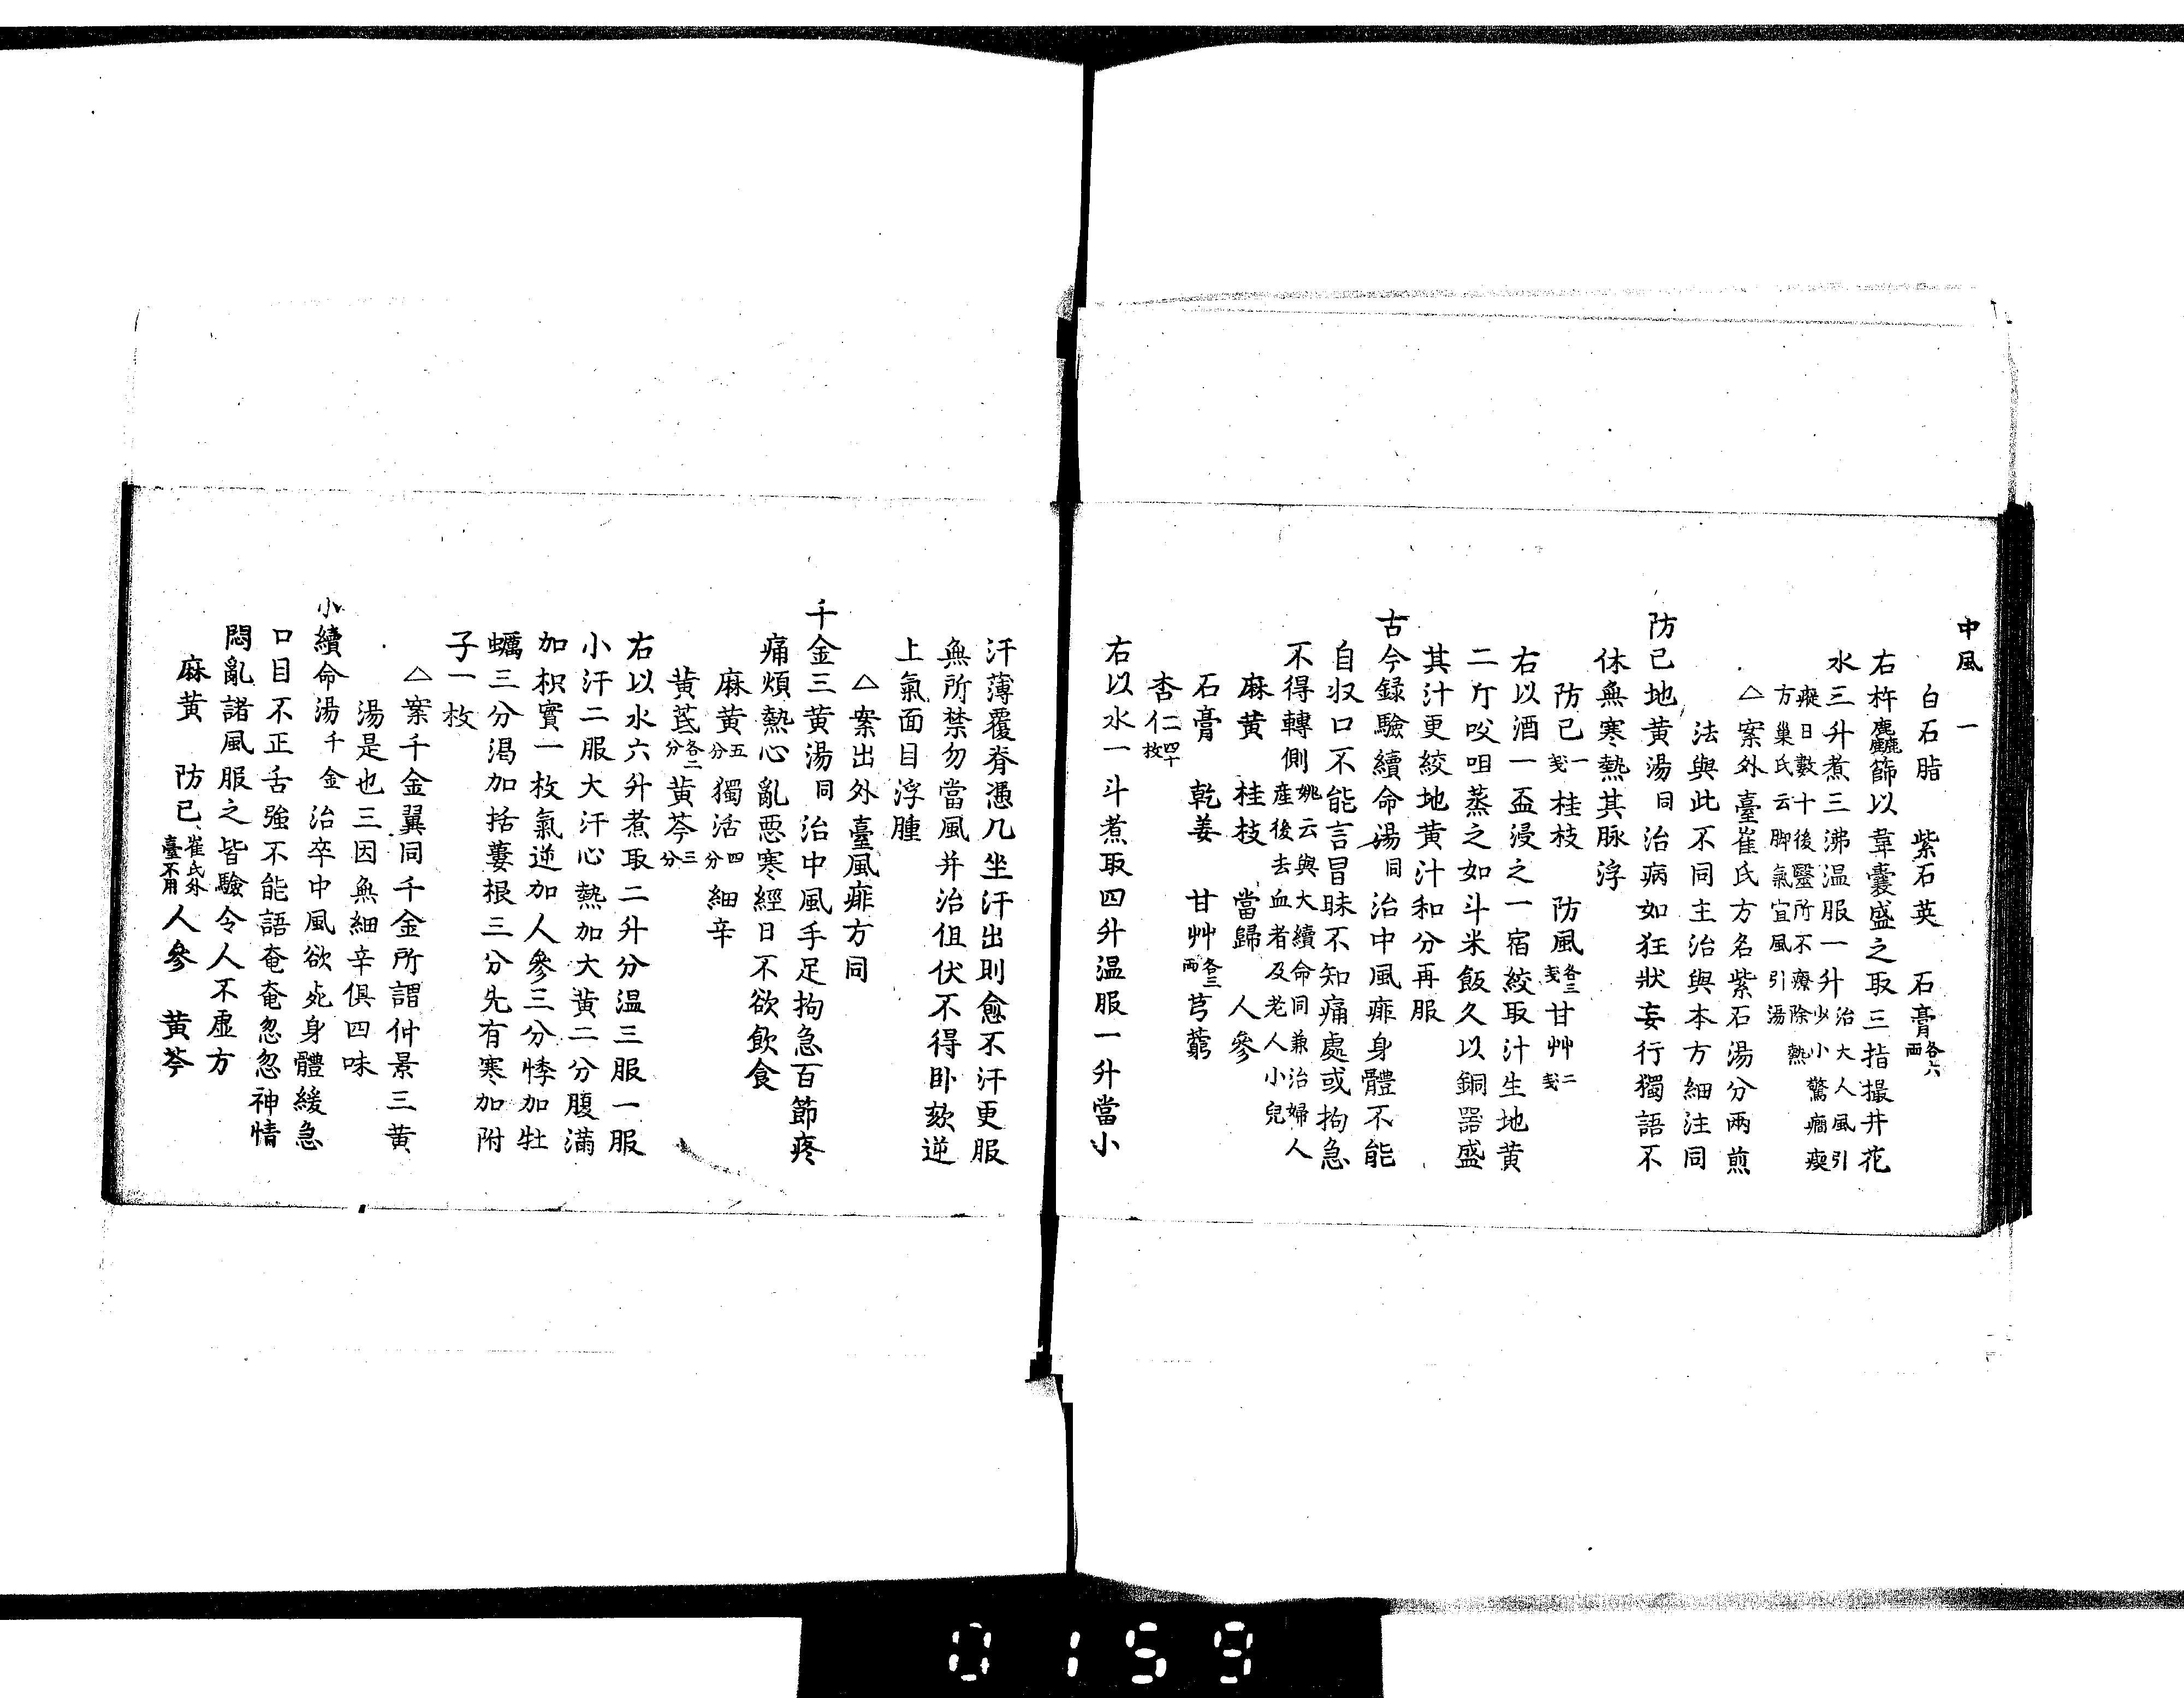 中風　一
白石脂　紫石英　石膏各六兩
右杵麤篩以韋囊盛之取三指撮井花
水三升煮三沸温服一升治大人風引少小驚癇瘈
瘲日數十後毉所不療除熱
方巢氏云脚氣宜風引湯
△案外臺崔氏方名紫石湯分兩煎
法與此不同主治與本方細注同
防已地黄湯同　治病如狂狀妄行獨語不
休無寒熱其脉浮
防已一戔　桂枝　防風各三戔　甘艸二戔
右以酒一盃浸之一宿絞取汁生地黄
二斤㕮咀蒸之如斗米飯久以銅器盛
其汁更絞地黄汁和分再服
古今録驗續命湯同　治中風痱身體不能
自収口不能言冒昧不知痛處或拘急
不得轉側姚云與大續命同兼治婦人產後去血者及老人小兒
麻黄　桂枝　當歸　人參
石膏　乾姜　甘艸各三兩　芎藭
杏仁四十枚
右以水一斗煮取四升温服一升當小
汗薄覆脊憑几坐汗出則愈不汗更服
無所禁勿當風并治但伏不得卧欬逆
上氣面目浮腫
△案出外臺風痱方同
千金三黄湯同　治中風手足拘急百節疼
痛煩熱心亂惡寒經日不欲飲食
麻黄五分　獨活四分　細辛
黄茋各二分　黄芩三分
右以水六升煮取二升分温三服一服
小汗二服大汗心熱加大黄二分腹滿
加枳實一枚氣逆加人參三分悸加牡
蠣三分渴加括蔞根三分先有寒加附
子一枚
△案千金翼同千金所謂仲景三黄
湯是也三因無細辛俱四味
小續命湯千金　治卒中風欲死身體緩急
口目不正舌強不能語奄奄忽忽神情
悶亂諸風服之皆驗令人不虛方
麻黄　防已崔氏外臺不用　人參　黄芩
0159